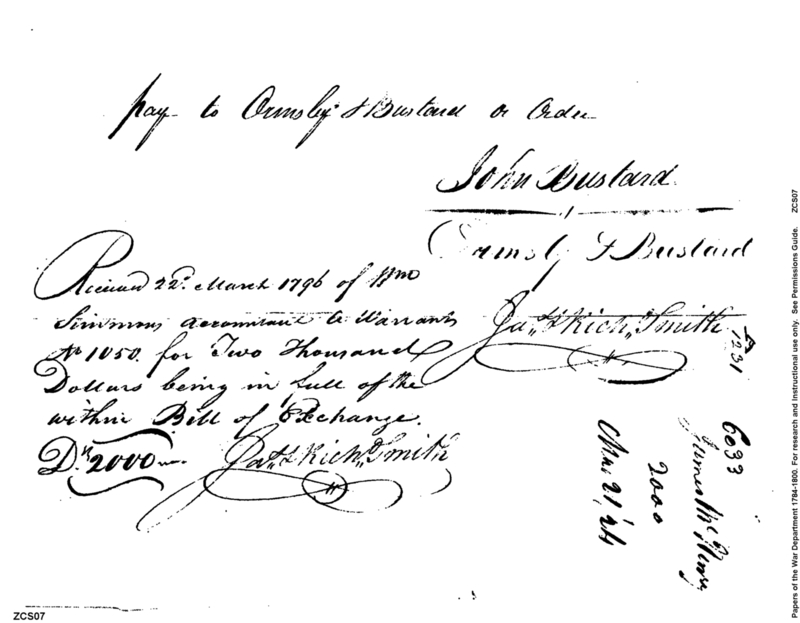 pay to Ormsby & Bustard or Order
John Bustard
Ormsby & Bustard
Received 22d. March 1796 of Wm
Simmons Accountant a Warrant
No 1050. for Two Thousand
Dollars being in full of the
within Bill of Exchange.
Drs 2000
Jas. & Richd. Smith
Jas. & Richd. Smith
1231
6033
James McHenry
2000
Mar 21
ZCS07
Papers of the War Department 1784-1800. For research and instructional use only. See Permissions Guide. ZCS07